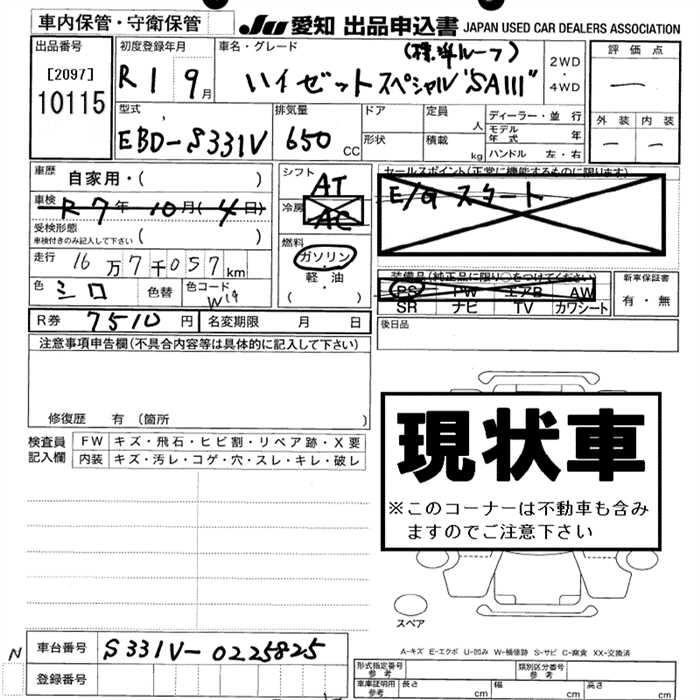 車内保管・守衛保管
JU 愛知 出品申込書 JAPAN USED CAR DEALERS ASSOCIATION
出品番号
[2097]
10115
初度登録年月
R1 9月
車名・グレード
(標準ルーフ)
ハイゼット スペシャル"SAIII"
2WD
・
4WD
評価点
―
外装 内装
― ―
型式
EBD-S331V
排気量
650 CC
ドア
形状
定員 人
積載 kg
ディーラー・並行
モデル年式 年
ハンドル 左・右
車歴
自家用・( )
車検
R7年10月(4日)
受検形態
車検付きのみ記入して下さい ( )
走行
16万7千057km
色 シロ 色替 色コード W19
R券 7510円 名変期限 月 日
シフト
AT
冷房
AC
燃料
ガソリン
・
軽・油
( )
セールスポイント(正常に機能するものに限ります)
E/Gスタート
装備品(純正品に限り○をつけてください)
PS PW エアB AW
SR ナビ TV カワシート
新車保証書
有・無
後日品
注意事項申告欄(不具合内容等は具体的に記入して下さい)
修復歴 有(箇所 )
検査員記入欄
FW キズ・飛石・ヒビ割・リペア跡・X要
内装 キズ・汚レ・コゲ・穴・スレ・キレ・破レ
現状車
※このコーナーは不動車も含み
ますのでご注意下さい
スペア
A-キズ E-エクボ U-凹み W-補修跡 S-サビ C-腐食 XX-交換済
N
車台番号 S331V-0225825
登録番号
形式指定番号 参考
類別区分番号 参考
車庫証明用 参考 長さ cm 幅 cm 高さ cm